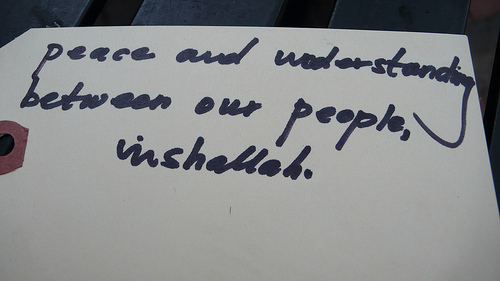 peace and understanding
between our people,
inshallah.